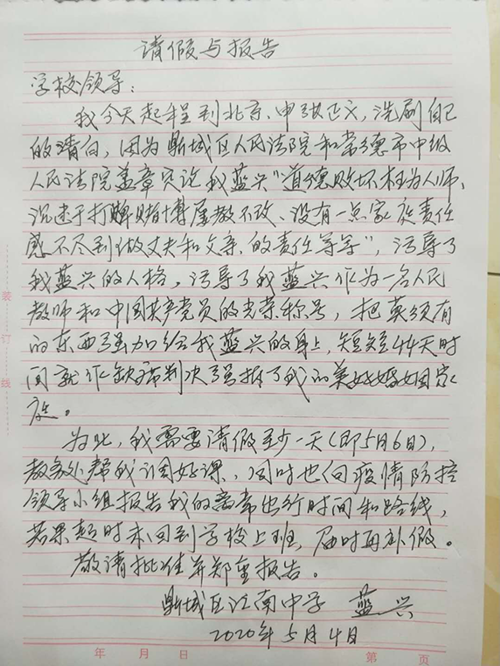 请假与报告
学校领导：
我今天起程到北京，申张正义，洗刷自己
的清白，因为鼎城区人民法院和常德市中级
人民法院盖章只论我蓝兴"道德败坏枉为人师，
沉迷于打牌赌博屡教不改、没有一点家庭责任
感不尽到做丈夫和父亲，的责任等等"，污辱了
我蓝兴的人格，污辱了我蓝兴作为一名人民
教师和中国共产党员的光荣称号，把莫须有
的东西强加给我蓝兴的身上，短短44天时
间就作缺席判决强拆了我的美好婚姻家
庭。
为此，我需要请假至少一天（即5月6日），
教务处帮我调好课，同时也向疫情防控
领导小组报告我的离常出行时间和路线，
若果超时未回到学校上班，届时再补假。
敬请批准并郑重报告。
鼎城区江南中学 蓝兴
2020年5月4日
装
订
线
年 月 日 第 页